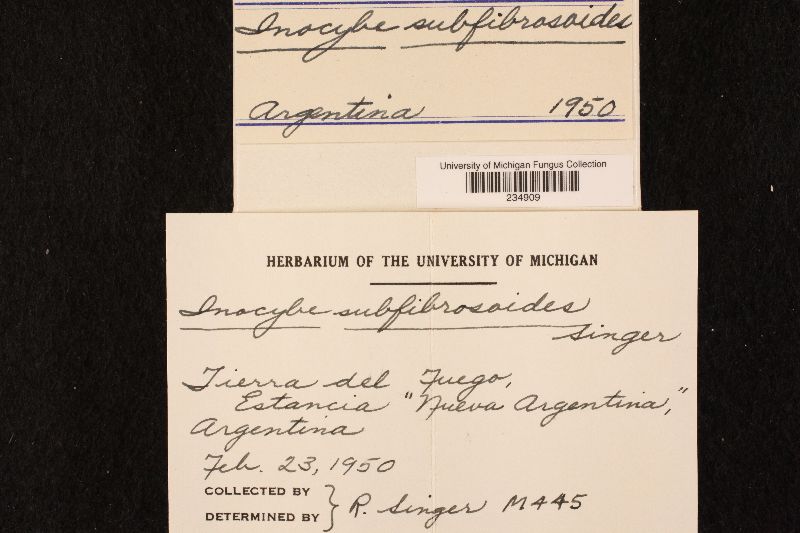 Inocybe subfibrosoides
Argentina 1950
University of Michigan Fungus Collection
234909
HERBARIUM OF THE UNIVERSITY OF MICHIGAN
Inocybe subfibrosoides
Singer
Tierra del Fuego,
Estancia "Nueva Argentina,"
Argentina
Feb. 23, 1950
COLLECTED BY
DETERMINED BY } R. Singer M445